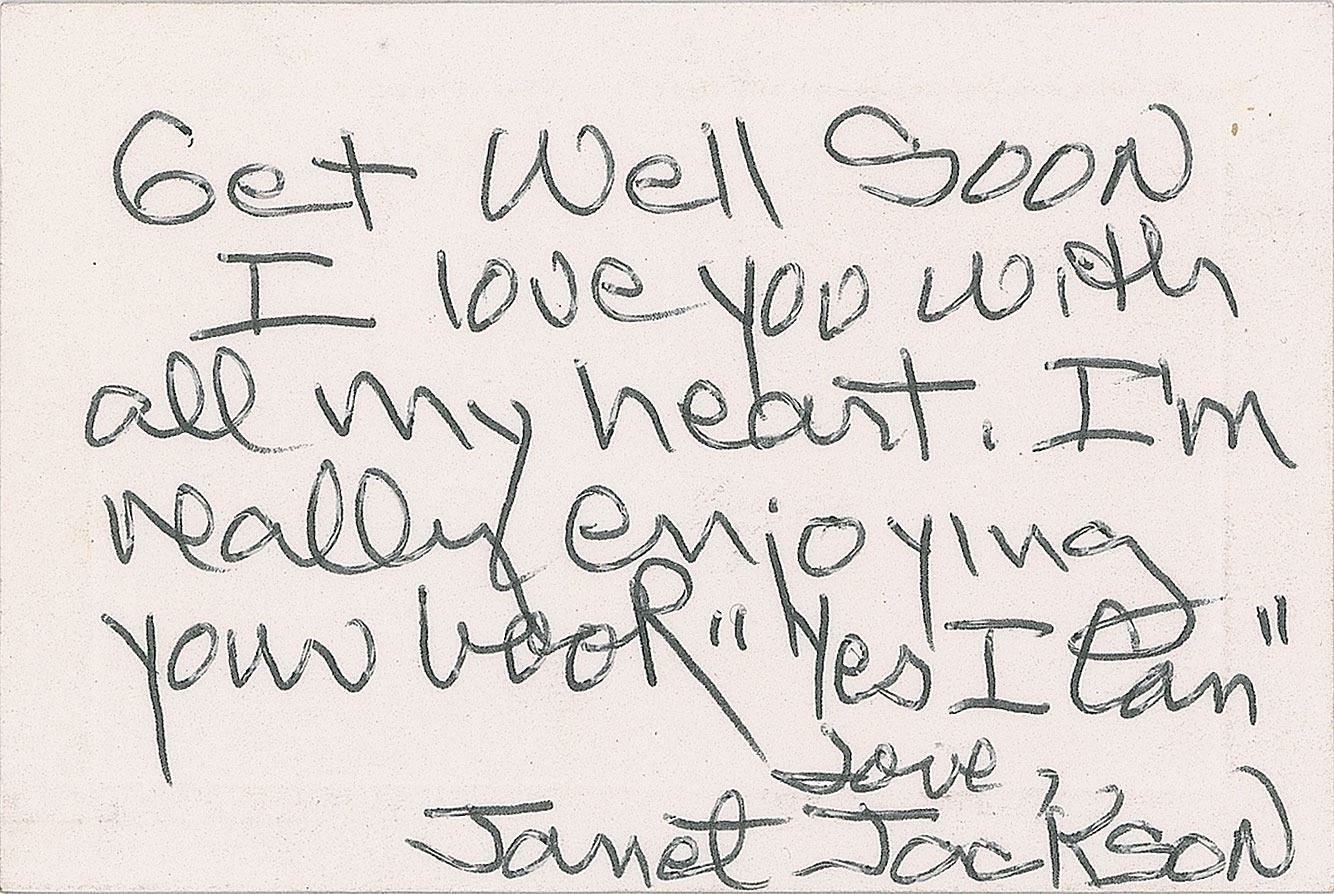 Get Well Soon
I love you with
all my heart. I'm
really enjoying
your book "Yes I Can"
Love,
Janet Jackson